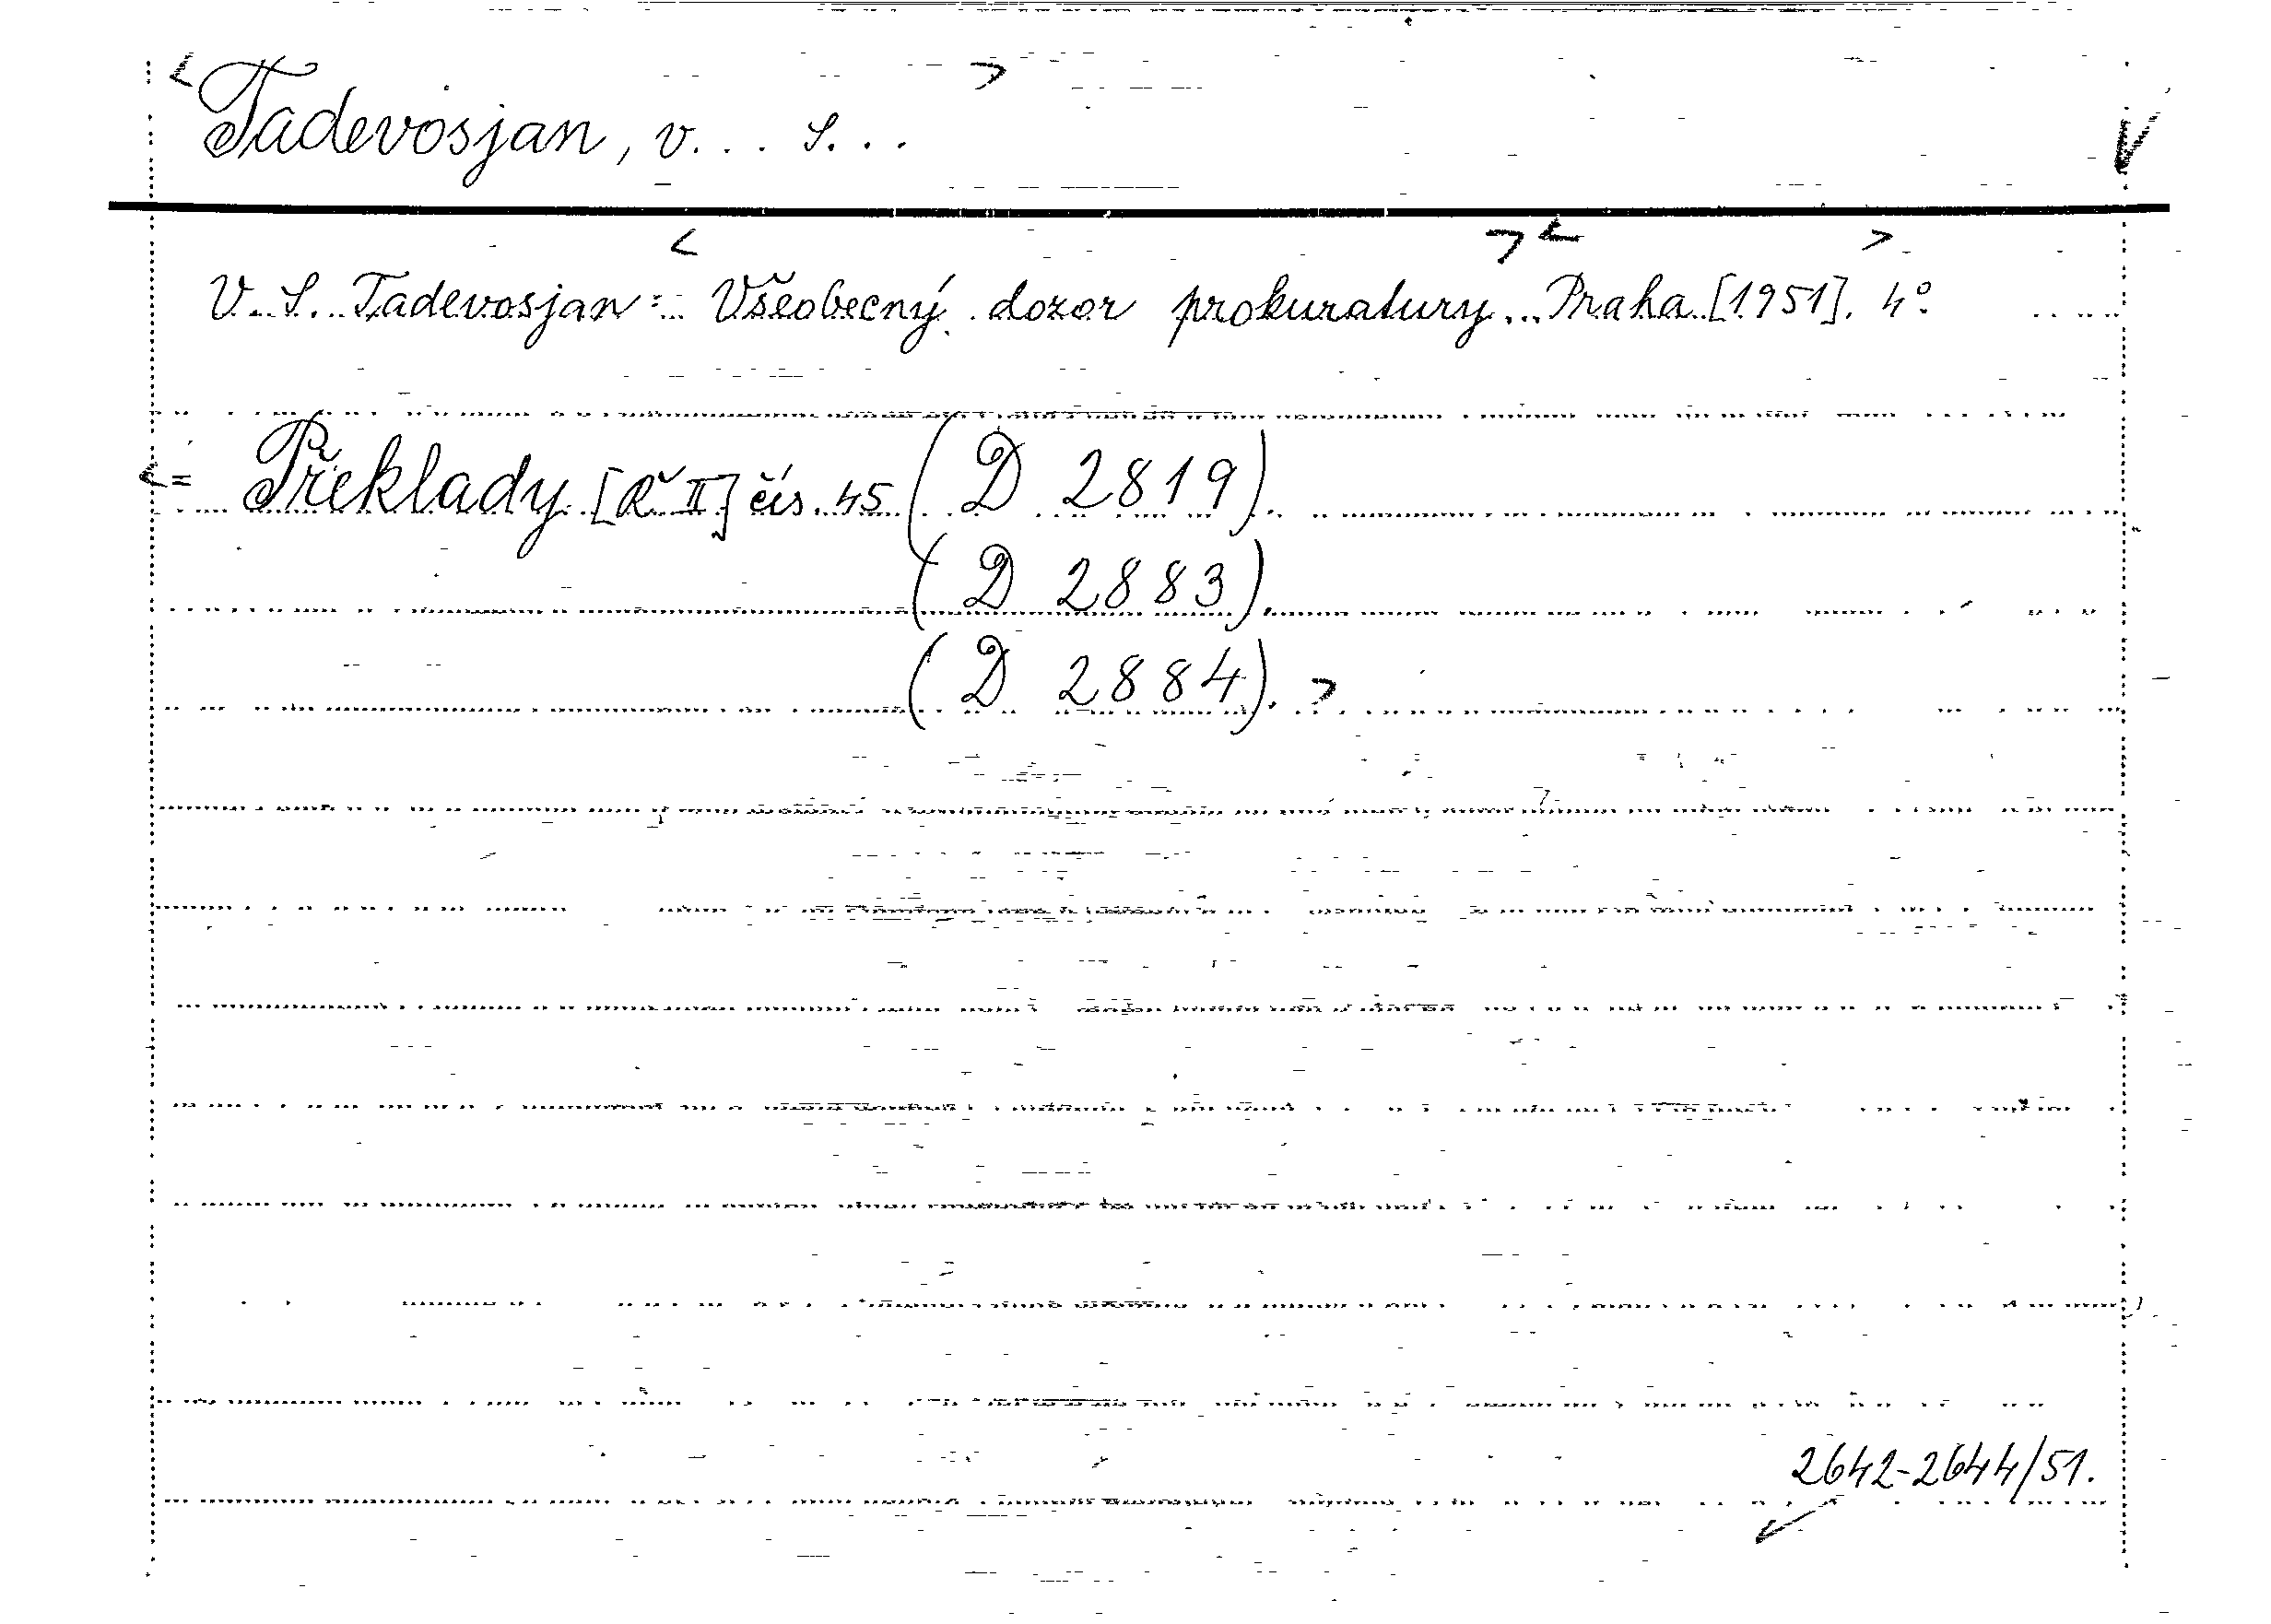 < Tadevosjan, V... S... > V
< > < >
V. S. Tadevosjan: Všeobecný dozor prokuratury... Praha [1951]. 4°.
<= Překlady [Ř II] čís. 45 (D 2819).
(D 2883).
(D 2884). >
2642-2644/51.